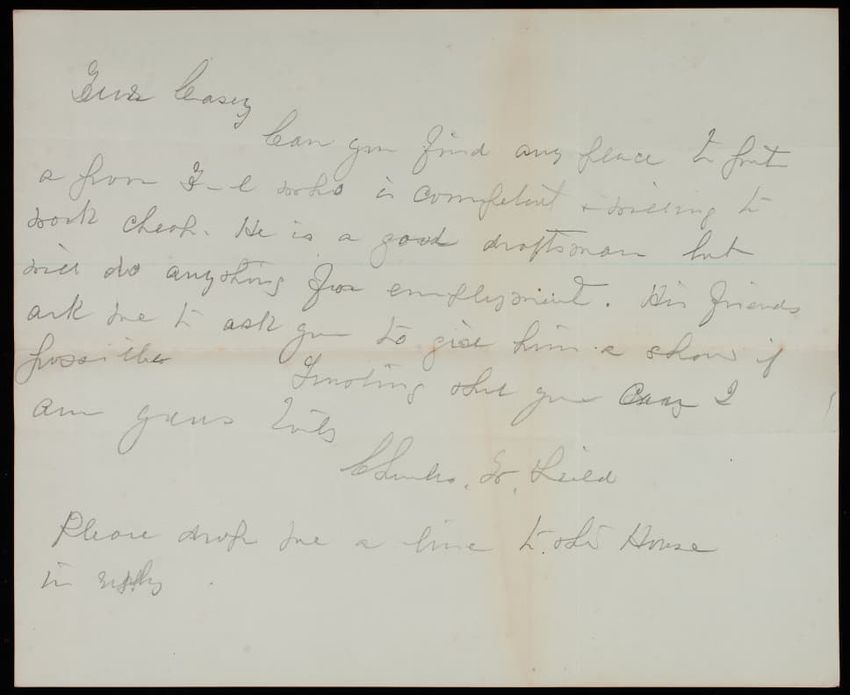 Genl Casey
Can you find any place to put
a poor who is competent & willing to
work cheap. He is a good draftsman but
will do anything for employment. His friends
ask me to ask you to give him a show if
possible Trusting that you can I
am yours truly
Chandler. W. Field
Please drop me a line to the House
in reply.